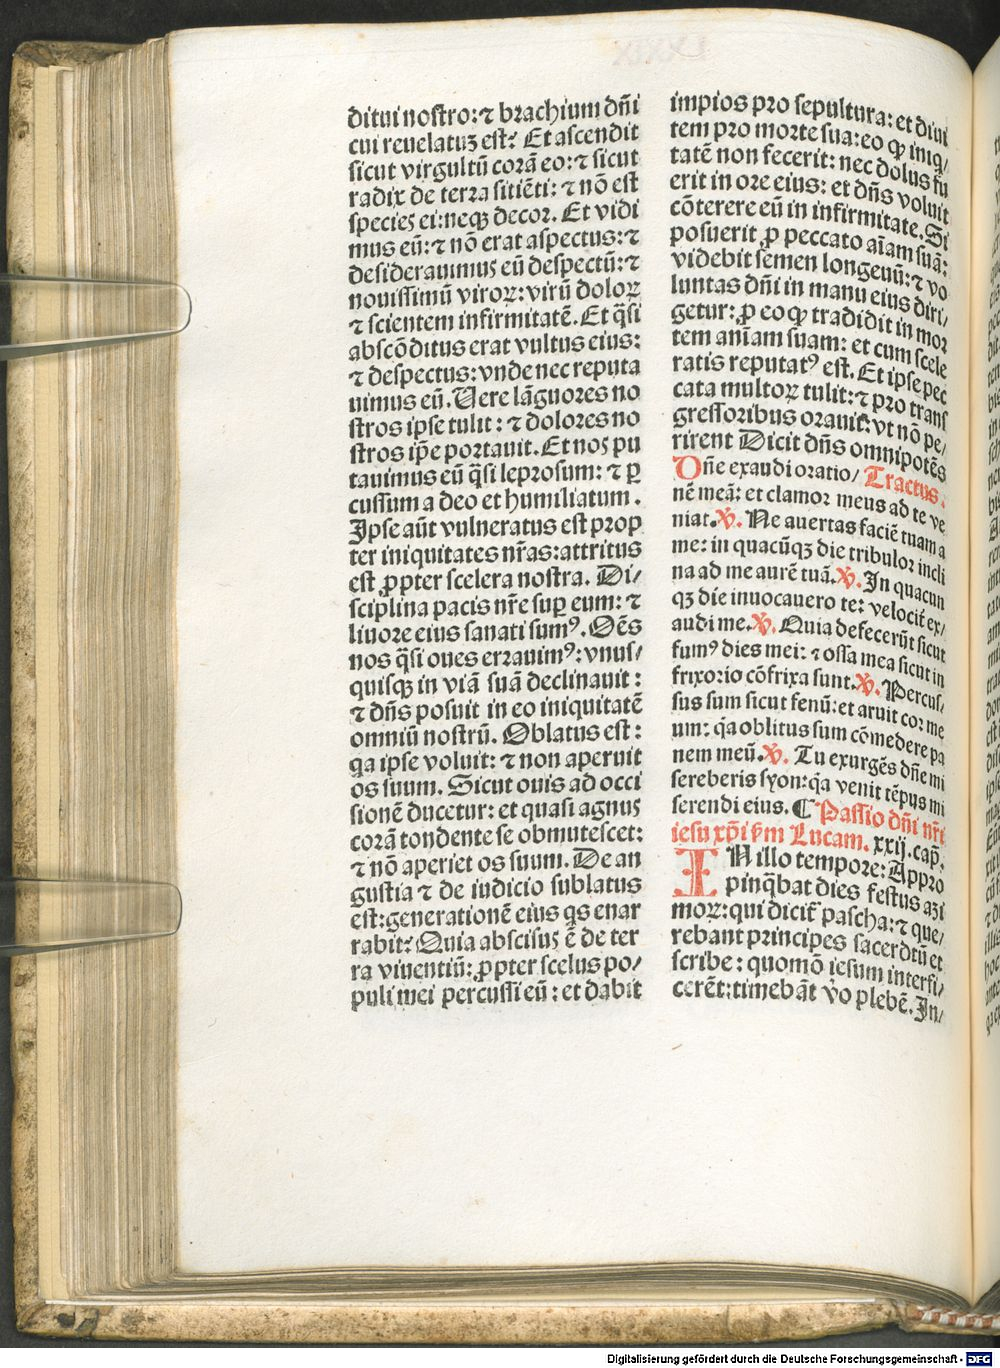 ditui nostro: ⁊ brachium dñi
cui reuelatuꝫ est? Et ascendit
sicut virgultū corā eo: ⁊ sicut
radix de terra sitiēti: ⁊ nō est
species ei: neqꝫ decor. Et vidi
mus eū: ⁊ nō erat aspectus: ⁊
desiderauimus eū despectū: ⁊
nouissimū viroꝝ: virū doloꝝ
⁊ scientem infirmitatē. Et q̄si
abscōditus erat vultus eius:
⁊ despectus: vnde nec reputa
uimus eū. Uere lāguores no
stros ipse tulit: ⁊ dolores no
stros ip̄e portauit. Et nos pu
tauimus eū q̄si leprosum: ⁊ ꝑ
cussum a deo et humiliatum.
Ipse aūt vulneratus est prop
ter iniquitates nr̄as: attritus
est ꝓpter scelera nostra. Di/
sciplina pacis nr̄e suꝑ eum: ⁊
liuore eius sanati sumꝰ. Oēs
nos q̄si oues errauimꝰ: vnus/
quisqꝫ in viā suā declinauit:
⁊ dñs posuit in eo iniquitatē
omniū nostrū. Oblatus est:
qa ipse voluit: ⁊ non aperuit
os suum. Sicut ouis ad occi
sionē ducetur: et quasi agnus
corā tondente se obmutescet:
⁊ nō aperiet os suum. De an
gustia ⁊ de iudicio sublatus
est: generationē eius qs enar
rabit? Quia abscisus ē de ter
ra viuentiū: ꝓpter scelus po/
puli mei percussi eū: et dabit
impios pro sepultura: et diui
tem pro morte sua: eo ꝙ iniq/
tatē non fecerit: nec dolus fu
erit in ore eius: et dñs voluit
cōterere eū in infirmitate. Si
posuerit ꝓ peccato aīam suā:
videbit semen longeuū: ⁊ vo
luntas dñi in manu eius diri/
getur: ꝓ eo ꝙ tradidit in mor
tem aniam suam: et cum scele
ratis reputatꝰ est. Et ipse pec
cata multoꝝ tulit: ⁊ pro trans
gressoribus orauit: vt nō pe/
rirent Dicit dñs omnipotēs
Dñe exaudi oratio/ Tractus.
nē meā: et clamor meus ad te ve
niat. ℣. Ne auertas faciē tuam a
me: in quacūqꝫ die tribulor incli
na ad me aurē tuā. ℣. In quacun
qꝫ die inuocauero te: velocit̄ ex/
audi me. ℣. Quia defecerūt sicut
fumꝰ dies mei: ⁊ ossa mea sicut in
frixorio cōfrixa sunt. ℣. Percus/
sus sum sicut fenū: et aruit cor me
um: q̄a oblitus sum cōmedere pa
nem meū. ℣. Tu exurgēs dñe mi
sereberis syon: q̄a venit tēpus mi
serendi eius. ¶ Passio dñi nr̄i
iesu xp̄i ẜm Lucam. xxij. cap̄.
IN illo tempore: Appro
pinq̄bat dies festus azi
moꝝ: qui dicit̄ pascha: ⁊ que/
rebant principes sacerdotū et
scribe: quomō iesum interfi/
cerēt: timebāt v̄o plebē. In/
Digitalisierung gefördert durch die Deutsche Forschungsgemeinschaft - DFG